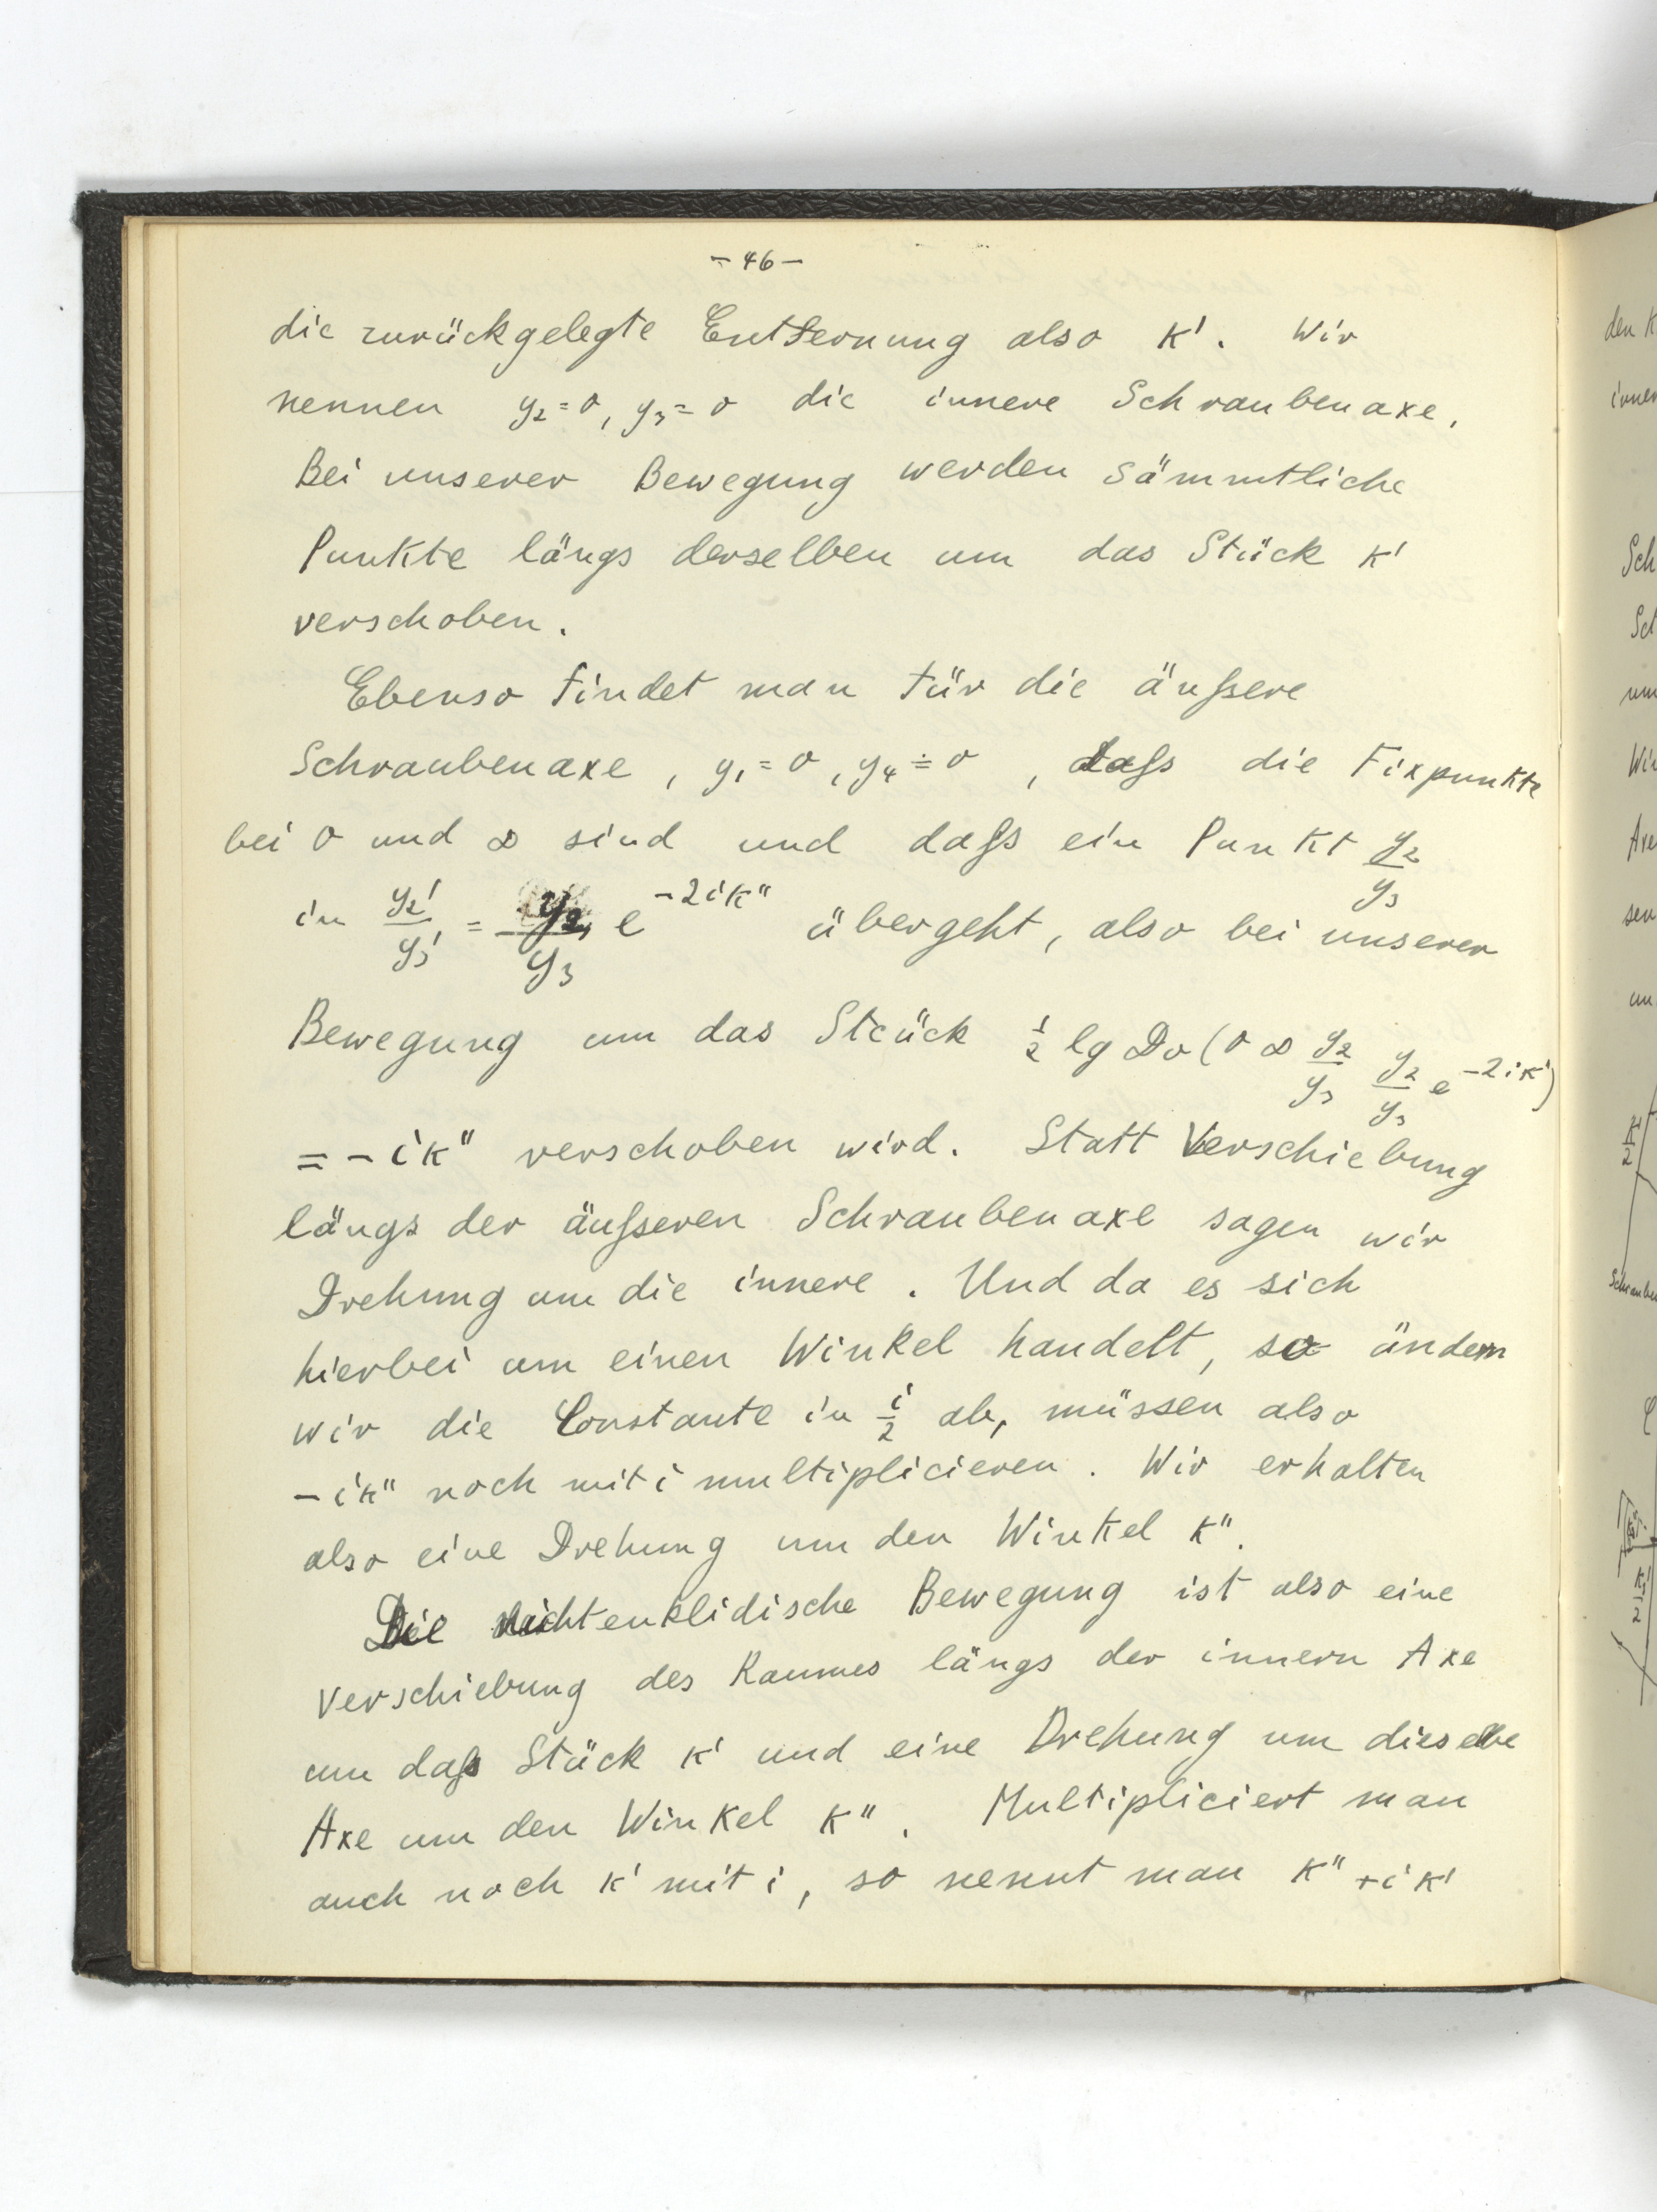 - 46 -
die zurückgelegte Entfernung also κ'. Wir
nennen y₂ = 0, y₃ = 0 die innere Schraubenaxe,
Bei unserer Bewegung werden sämmtliche
Punkte längs derselben um das Stück κ'
verschoben.
Ebenso findet man für die äußere
Schraubenaxe, y₁ = 0, y₄ = 0, daß die Fixpunkte
bei 0 und ∞ sind und daß ein Punkt y₂/y₃
in y₂'/y₃' = y₂/y₃ e^{-2iκ''} übergeht, also bei unserer
Bewegung um das Stück ½ lg Dv (0 ∞ y₂/y₃ y₂/y₃ e^{-2iκ'})
= -iκ'' verschoben wird. Statt Verschiebung
längs der äußeren Schraubenaxe sagen wir
Drehung um die innere. Und da es sich
hierbei um einen Winkel handelt, so ändern
wir die Constante in i/2 ab, müssen also
-iκ'' noch mit i multiplicieren. Wir erhalten
also eine Drehung um den Winkel κ''.
Die nichteuklidische Bewegung ist also eine
Verschiebung des Raumes längs der innern Axe
um daß Stück κ' und eine Drehung um dieselbe
Axe um den Winkel κ''. Multipliciert man
auch noch κ' mit i, so nennt man κ'' + iκ'
den K
Sch
Wir